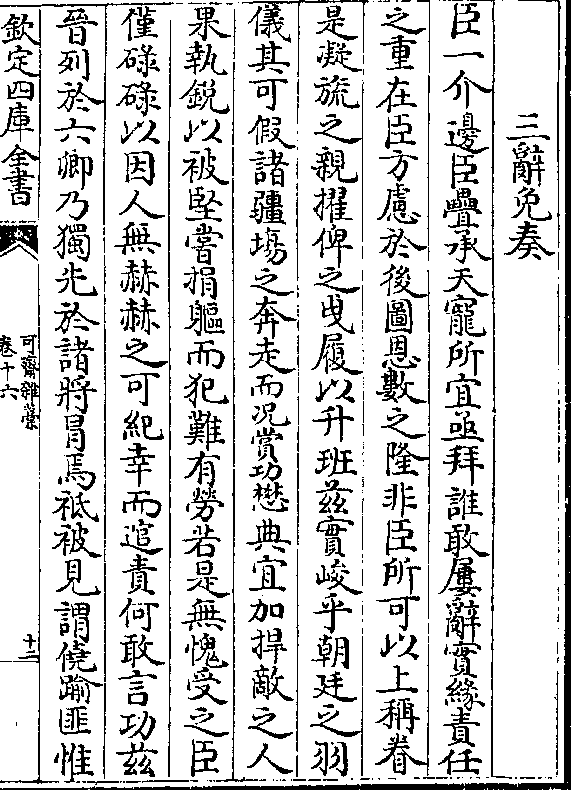 三辭免奏
臣一介邊臣疊承天寵所宜亟拜誰敢屢辭實緣責任
之重在臣方慮於後圖恩數之隆非臣所可以上稱眷
是凝旒之親擢俾之曵履以升班兹實峻乎朝廷之羽
儀其可假諸疆埸之奔走而况賞功懋典宜加捍敵之人
果執銳以被堅嘗捐軀而犯難有勞若是無愧受之臣
僅碌碌以因人無赫赫之可紀幸而逭責何敢言功兹
晉列於六卿乃獨光於諸將冒焉祗被見謂僥踰匪惟
欽定四庫全書
可齋雜藁
卷十六
十二